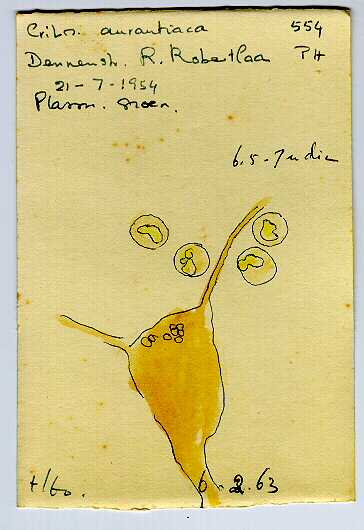 Cribr. aurantiaca 554
Dennensh. R. Robertlaan PH
21-7-1954
Plasm. groen.
6.5-7 u diam
H/60. 6-2.63